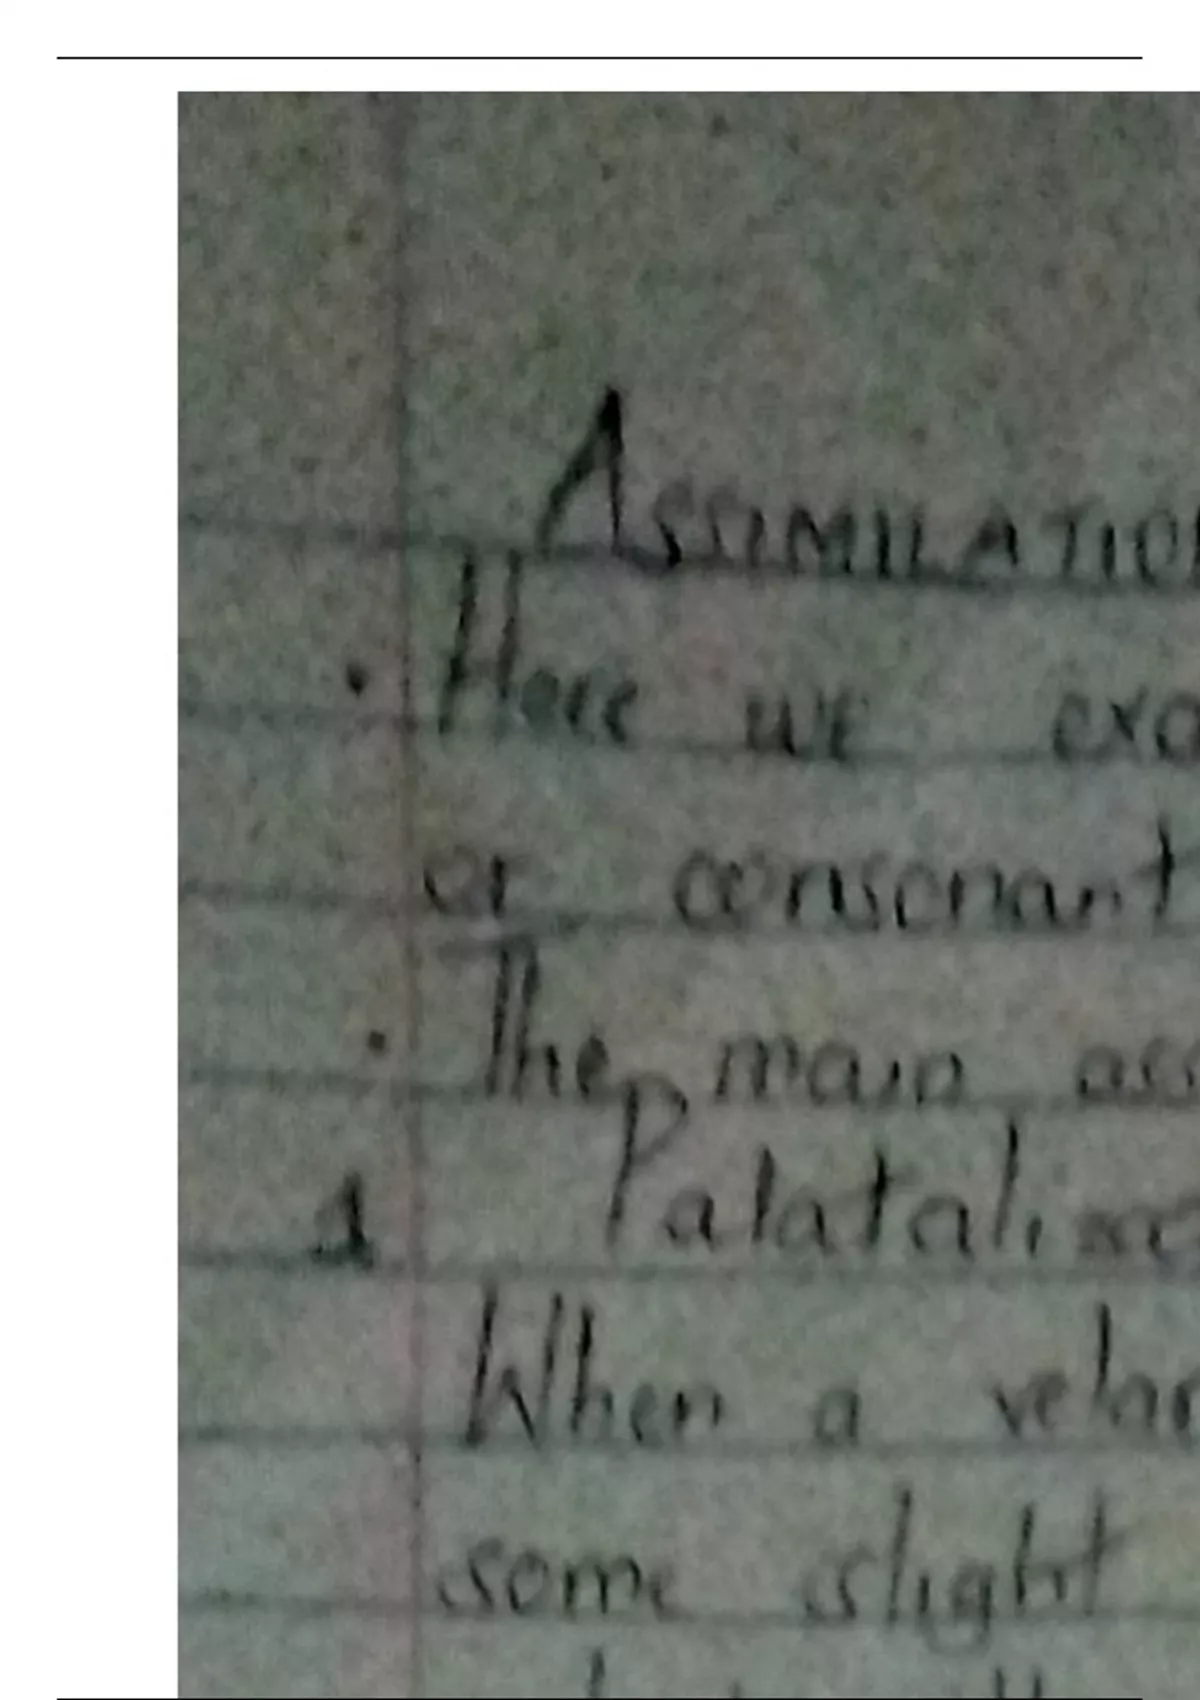 ASSIMILATIO
• Here we exa
or consonant
• The main ass
1 Palatalise
When a velar
some slight